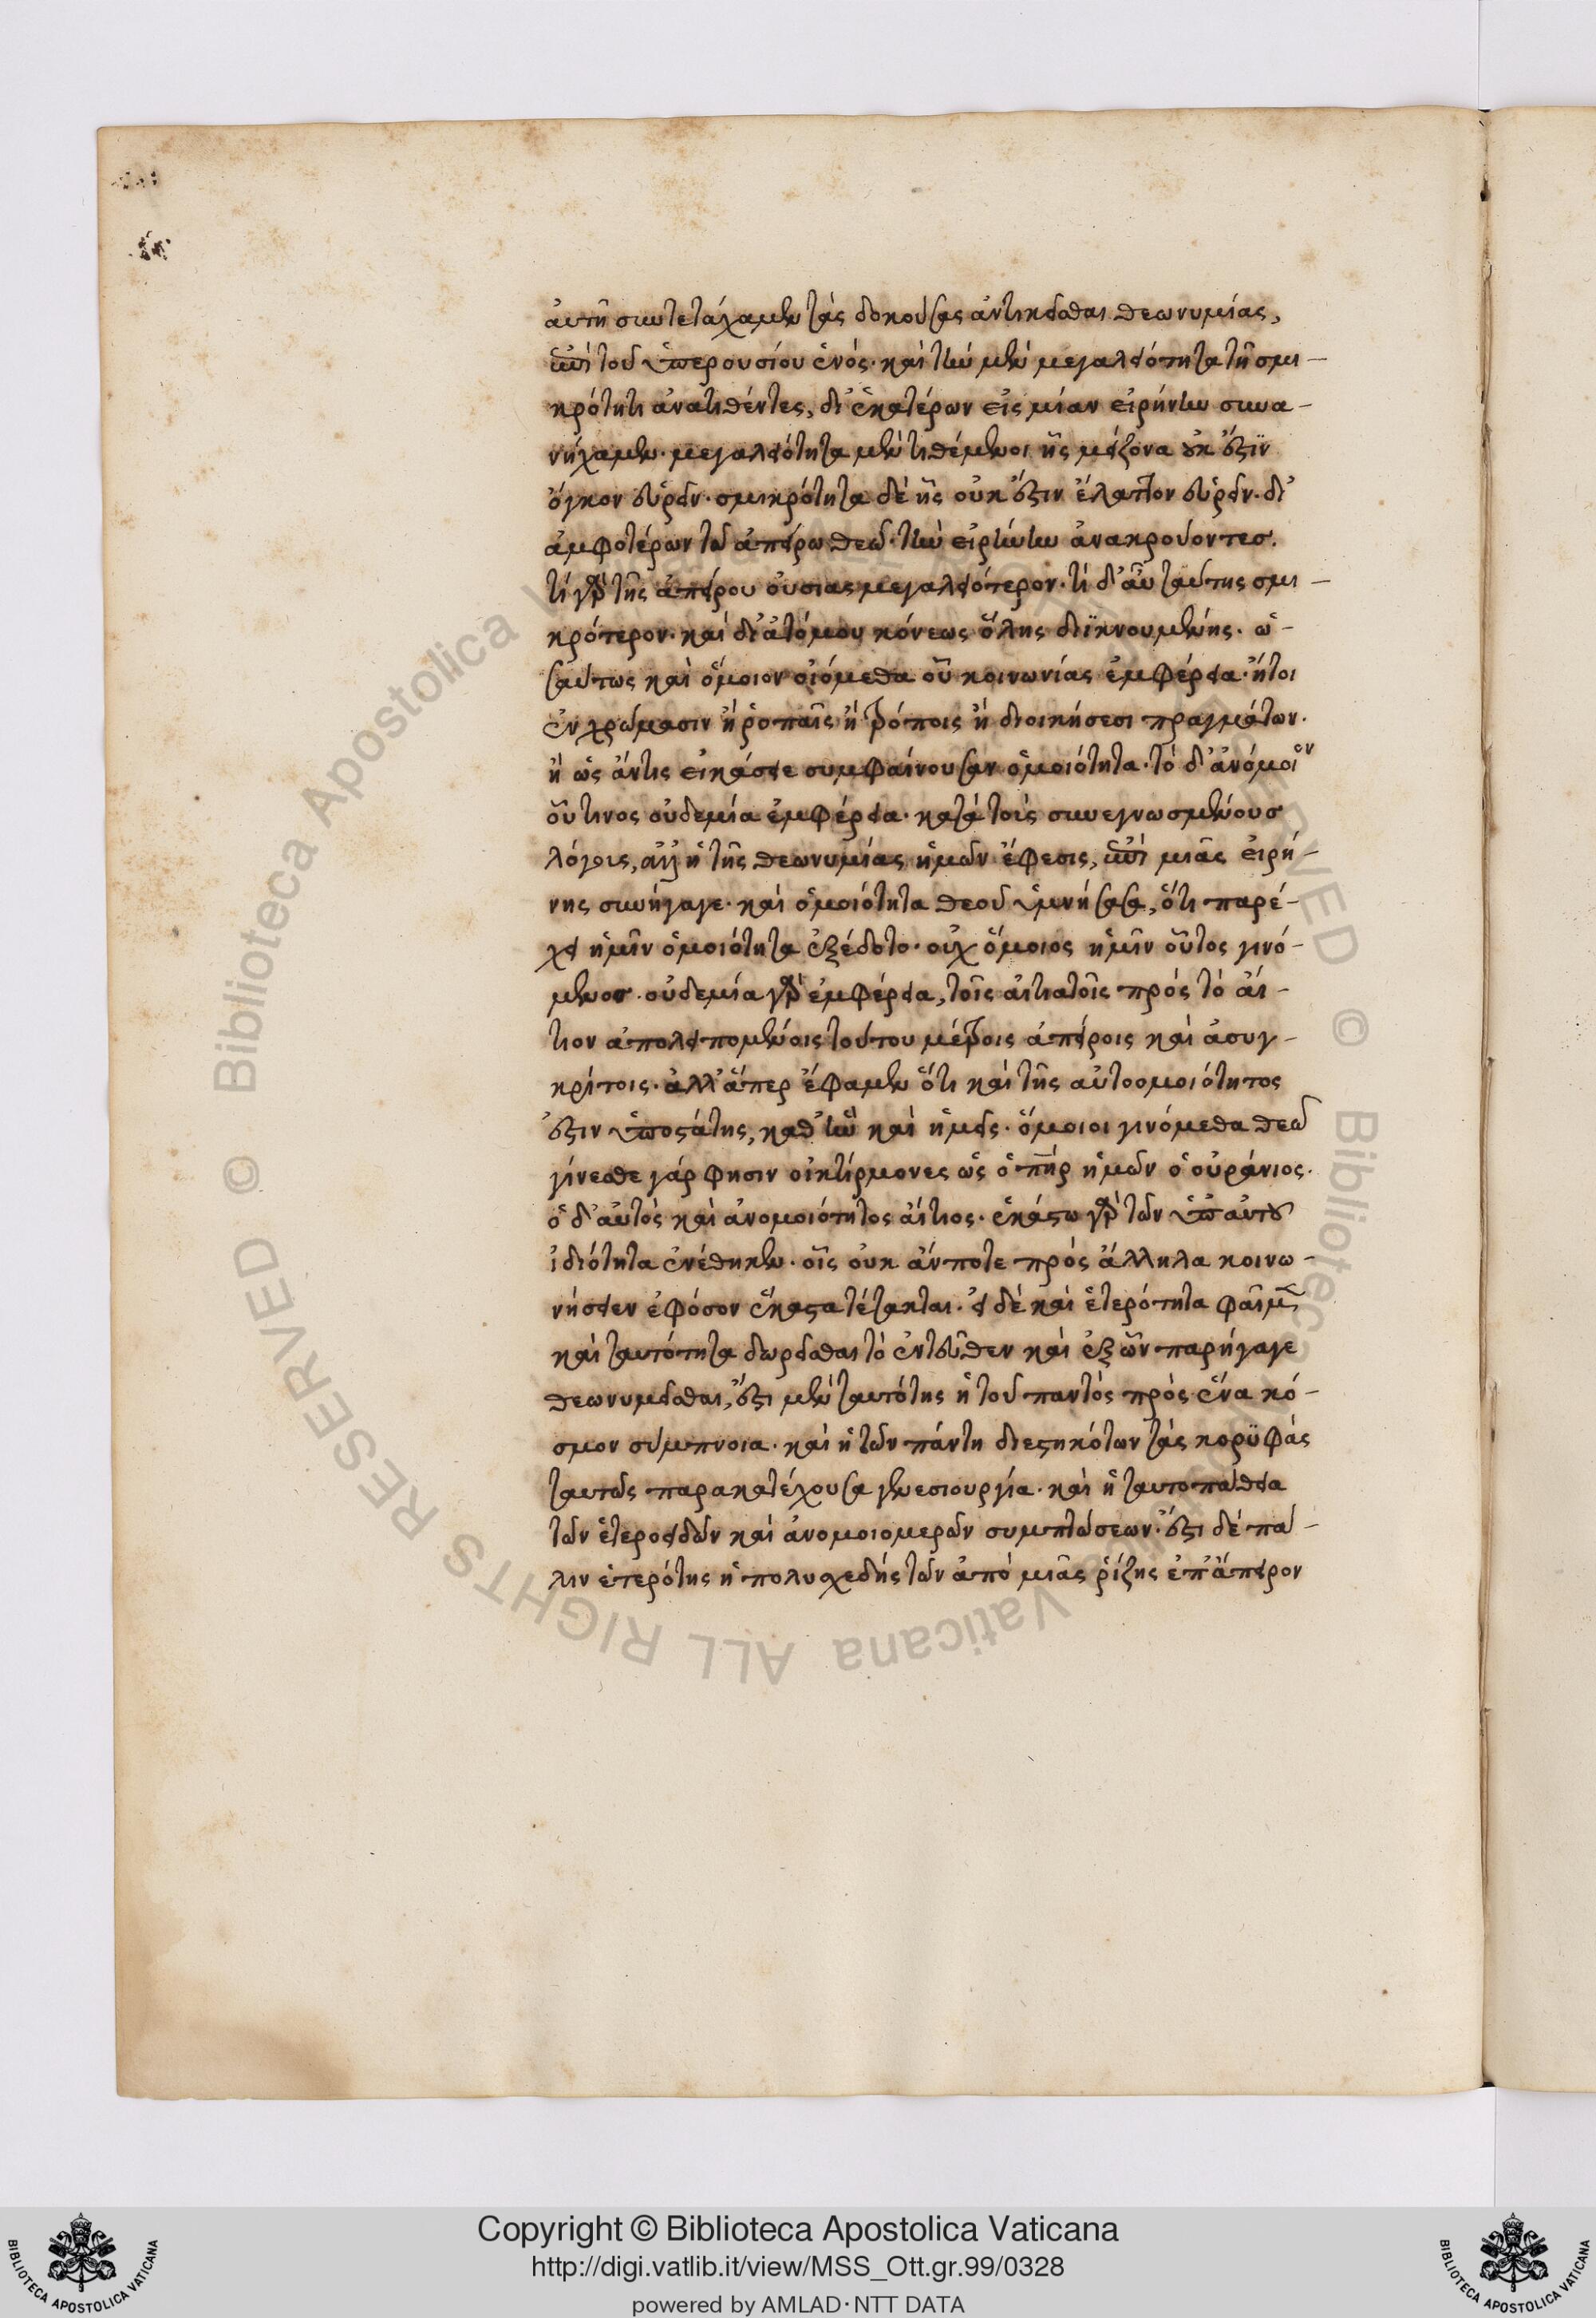 αὐτῆ συντετάχαμεν τὰς δοκούσας ἀντικεῖσθαι θεωνυμίας,
ἐπὶ τοῦ ὑπερουσίου ἑνός· καὶ τὴν μὲν μεγαλειότητα τῆ σμι-
κρότητι ἀνατιθέντες, δι' ἑκατέρων εἰς μίαν εἰρήνην συνα-
νήχαμεν· μεγαλειότητα μὲν τιθέμενοι ἧς μείζονα οὐκ ἔστιν
ὄγκον εὑρεῖν· σμικρότητα δὲ ἧς οὐκ ἔστιν ἔλαττον εὑρεῖν· δι'
ἀμφοτέρων τῶ ἀπείρω θεῶ· τὴν εἰρήνην ἀνακρούοντες.
τί γὰρ τῆς ἀπείρου οὐσίας μεγαλειότερον· τί δ' αὖ ταύτης σμι-
κρότερον· καὶ δι' ἀτόμου κόνεως ὅλης διϊκνουμένης· ὡ-
σαύτως καὶ ὅμοιον οἰόμεθα οὗ κοινωνίας ἐμφέρεια· ἤτοι
ἐν χρώμασιν ἢ ῥοπαῖς ἢ τρόποις ἢ διοικήσεσι πραγμάτων·
ἢ ὡς ἄν τις εἰκάσειε συμφαίνουσαν ὁμοιότητα· τὸ δ' ἀνόμοιον
οὗτινος οὐδεμία ἐμφέρεια· κατὰ τοὺς συνεγνωσμένους
λόγοις, ἀλλ' ἡ τῆς θεωνυμίας ἡμῶν ἔφεσις, ἐπὶ μιᾶς εἰρή-
νης συνήγαγε· καὶ ὁμοιότητα θεοῦ ὑμνήσασα, ὅτι παρέ-
χει ἡμῖν ὁμοιότητα ἐξέδοτο· οὐχ ὅμοιος ἡμῖν οὗτος γινό-
μενος· οὐδεμία γὰρ ἐμφέρεια, τοῖς αἰτιατοῖς πρὸς τὸ αἴ-
τιον ἀπολειπομένοις τούτου μέτροις ἀπείροις καὶ ἀσυγ-
κρίτοις· ἀλλ' ἅπερ ἔφαμεν ὅτι καὶ τῆς αὐτοομοιότητος
ἔστιν ὑποστάτης, καθ' ἣν καὶ ἡμεῖς· ὅμοιοι γινόμεθα θεῶ
γίνεσθε γάρ φησιν οἰκτίρμονες ὡς ὁ πηρ ἡμῶν ὁ οὐράνιος·
ὁ δ' αὐτὸς καὶ ἀνομοιότητος αἴτιος· ἑκάστω γὰρ τῶν ὑπ' αὐτοῦ
ἰδιότητα ἐνέθηκεν· οἷς οὐκ ἄν ποτε πρὸς ἄλληλα κοινω-
νήσειεν ἐφόσον ἕκαστα τέτακται· εἰ δὲ καὶ ἑτερότητα φαῖμεν
καὶ ταυτότητα δωρεῖσθαι τὸ ἐντεῦθεν καὶ ἐξ ὧν παρήγαγε
θεωνυμεῖσθαι, ἔστι μὲν ταυτότης ἡ τοῦ παντὸς πρὸς ἕνα κό-
σμον σύμπνοια· καὶ ἡ τῶν πάντη διεστηκότων τὰς κορϋφὰς
ταυτῶς παρακατέχουσα γενεσιουργία· καὶ ἡ ταυτοπάθεια
τῶν ἑτεροειδῶν καὶ ἀνομοιομερῶν συμπτώσεων· ἔστι δὲ πά-
λιν ἑτερότης ἡ πολυσχεδὴς τῶν ἀπὸ μιᾶς ῥίζης ἐπ' ἄπειρον
Copyright © Biblioteca Apostolica Vaticana
http://digi.vatlib.it/view/MSS_Ott.gr.99/0328
powered by AMLAD·NTT DATA